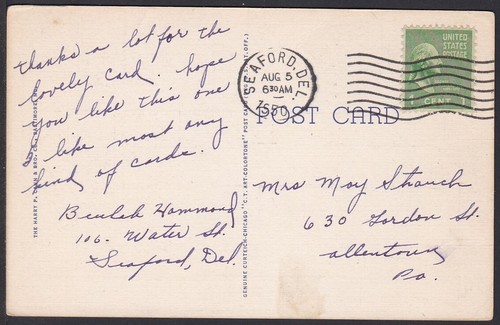 thanks a lot for the
lovely card. hope
you like this one
I like most any
kind of cards.
Beulah Hammond
106. Water St.
Seaford, Del.
THE HARRY P. & BRO. CO., BALTIMORE, MD.
POST CARD
GENUINE CURTEICH-CHICAGO "C.T. ART-COLORTONE" POST CARD (REG. U.S. PAT. OFF.)
SEAFORD, DEL.
AUG 5
6 30 AM
UNITED
STATES
POSTAGE
1 CENT 1
Mrs May Strauch
630 Gordon St.
allentown
Pa.